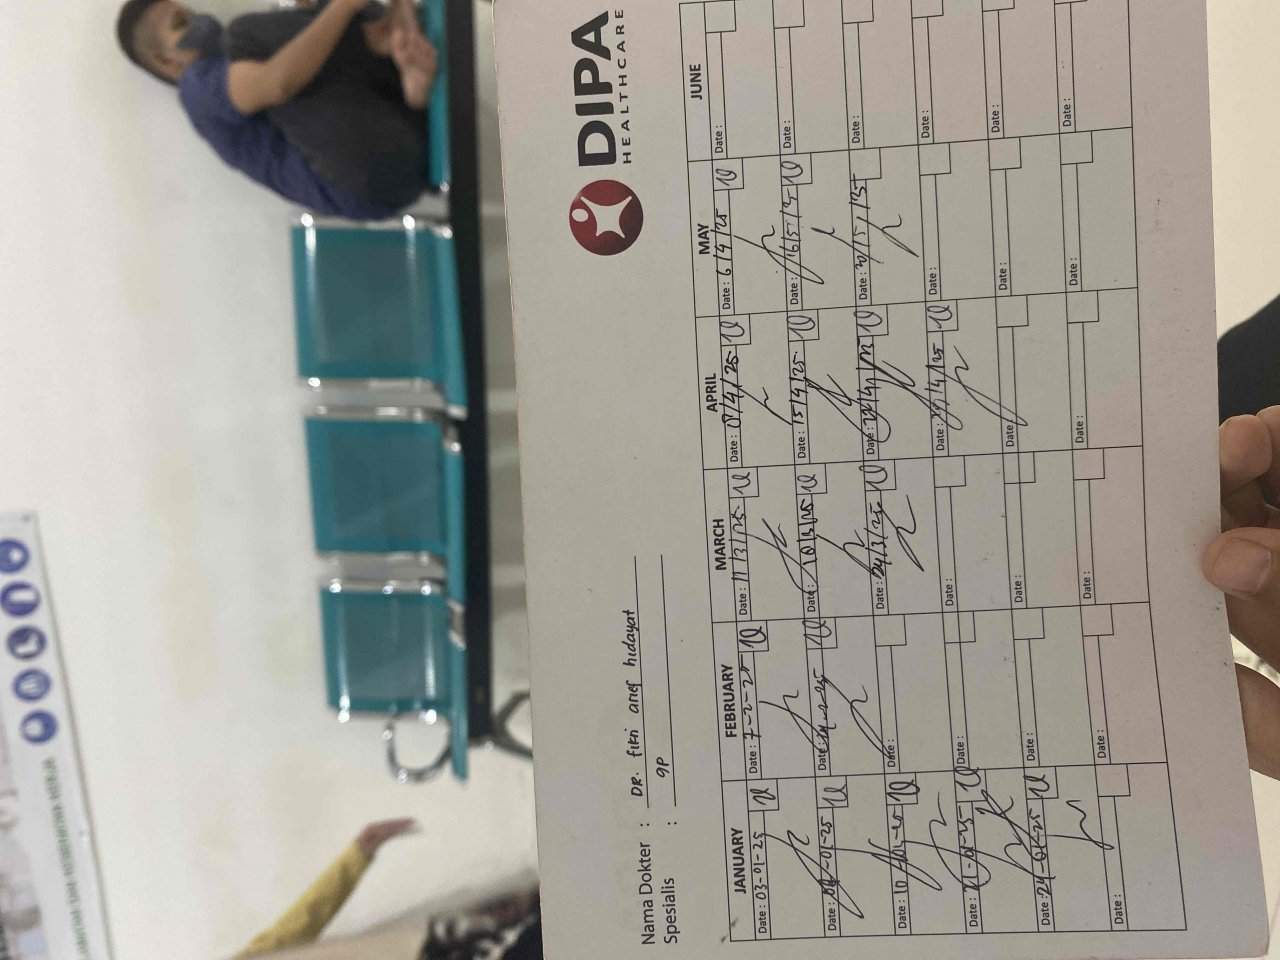 DIPA
HEALTHCARE
Nama Dokter : DR. fikri arief hidayat
Spesialis : gp
JANUARY FEBRUARY MARCH APRIL MAY JUNE
Date : 03-01-25 Date : 7-2-25 Date : 11/3/25 Date : 8/4/25 Date : 6/4/25 Date :
Date : -01-25 Date : Date : Date : 15/4/25 Date : 16/5/25 Date :
Date : 10 Date : Date : 24/3/25 Date : 22/4/25 Date : 20/5/25 Date :
Date : 21-01-25 Date : Date : Date : 29/4/25 Date : Date :
Date : 24-01-25 Date : Date : Date : Date : Date :
Date : Date : Date : Date : Date : Date :